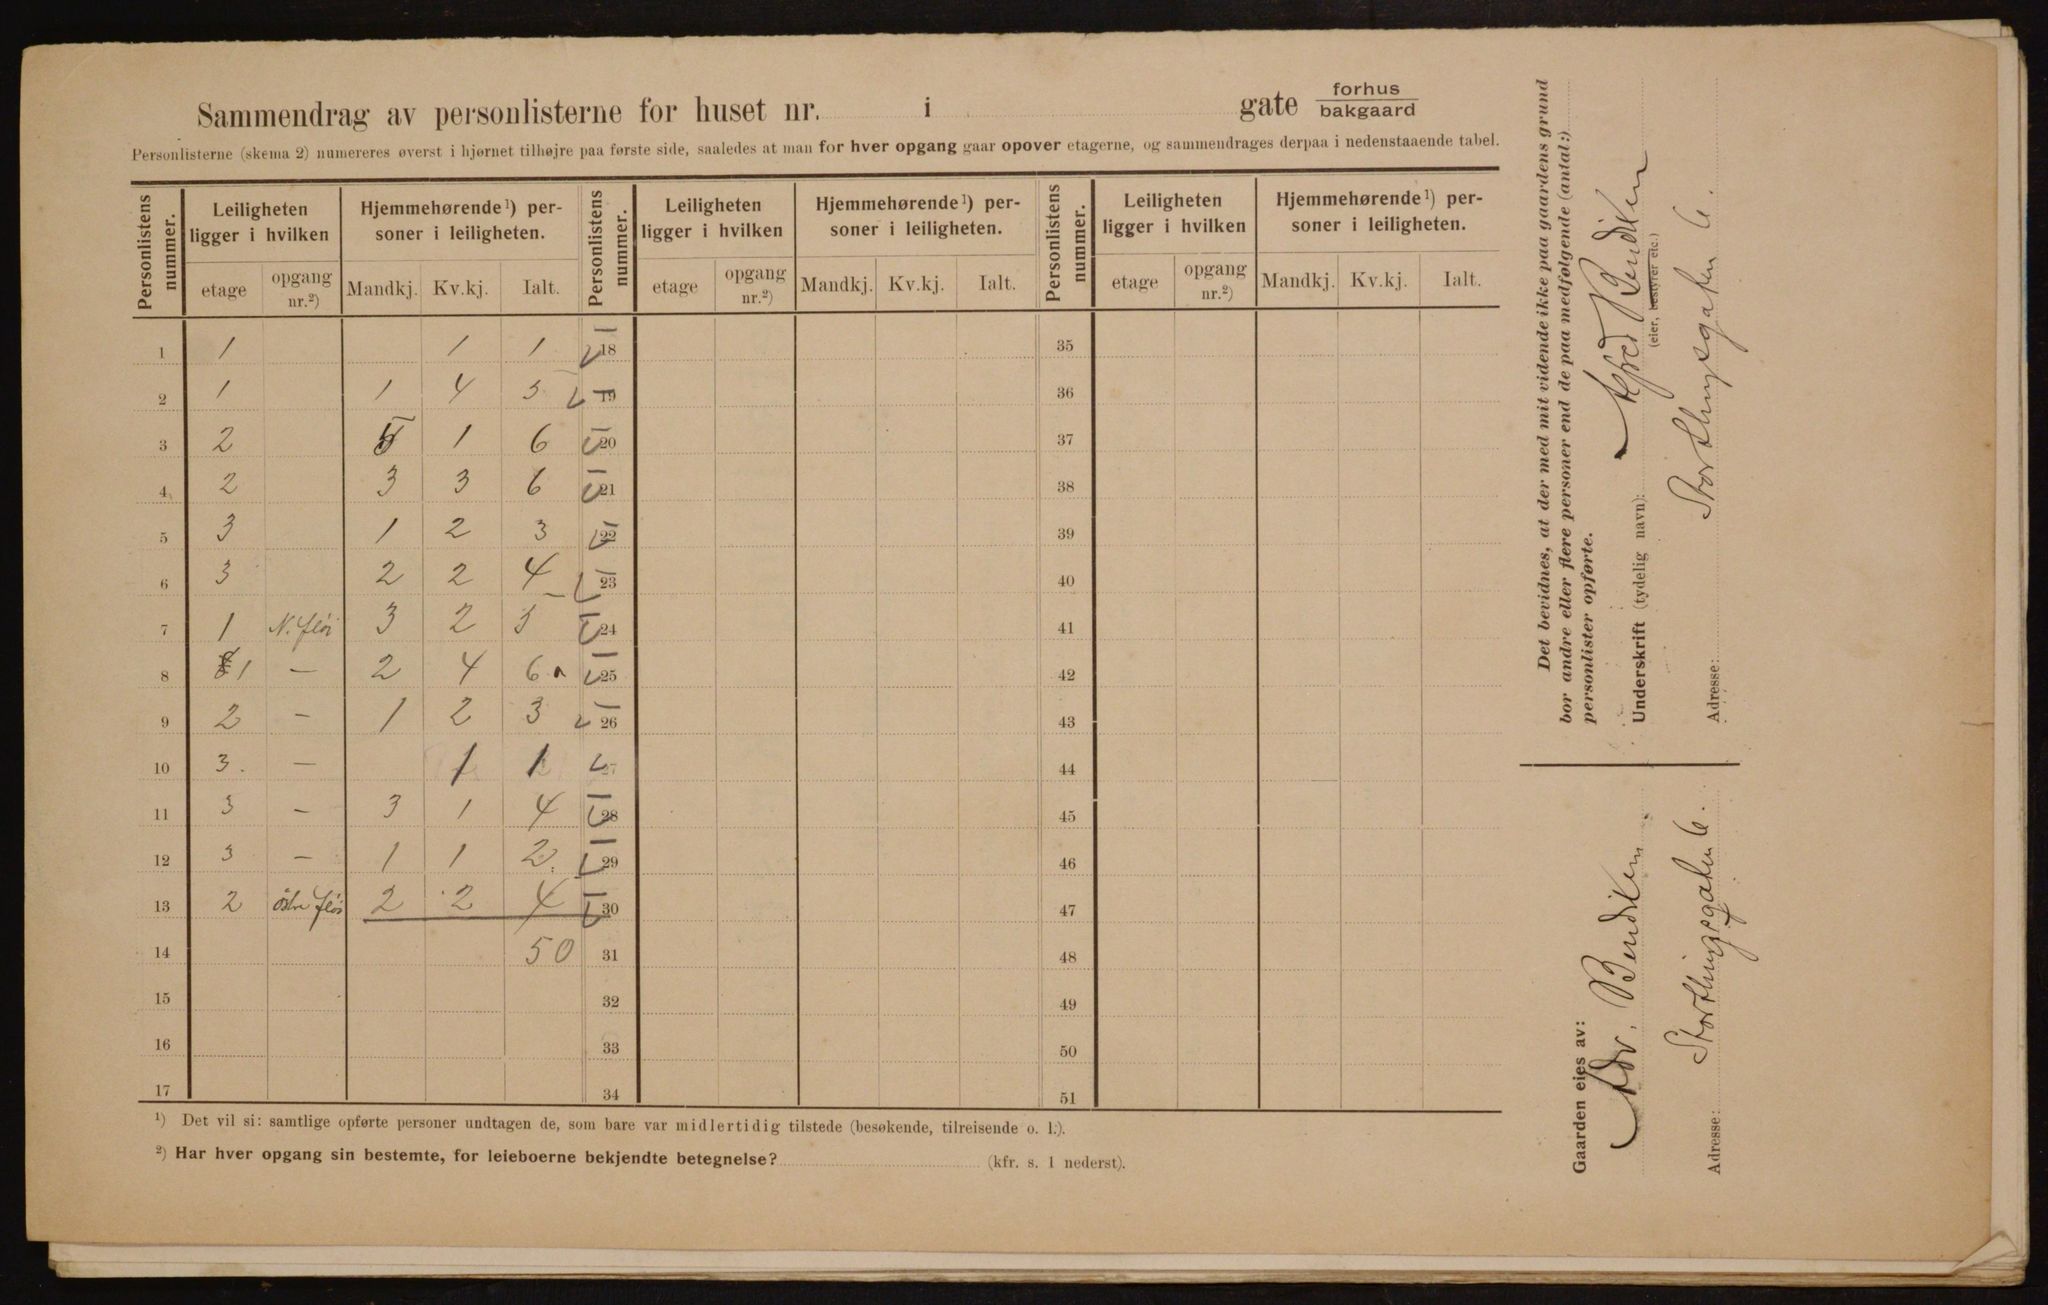 Sammendrag av personlisterne for huset nr. i gate forhus
bakgaard
Personlisterne (skema 2) numereres øverst i hjørnet tilhøjre paa første side, saaledes at man for hver opgang gaar opover etagerne, og sammendrages derpaa i nedenstaaende tabel.
Personlistens nummer. Leiligheten ligger i hvilken Hjemmehørende¹) personer i leiligheten. Personlistens nummer. Leiligheten ligger i hvilken Hjemmehørende¹) personer i leiligheten. Personlistens nummer. Leiligheten ligger i hvilken Hjemmehørende¹) personer i leiligheten.
etage opgang nr.²) Mandkj. Kv.kj. Ialt. etage opgang nr.²) Mandkj. Kv.kj. Ialt. etage opgang nr.²) Mandkj. Kv.kj. Ialt.
1 1 1 1 18 35
2 1 1 4 5 19 36
3 2 5 1 6 20 37
4 2 3 3 6 21 38
5 3 1 2 3 22 39
6 3 2 2 4 23 40
7 1 N. fløi 3 2 5 24 41
8 1 — 2 4 6 25 42
9 2 — 1 2 3 26 43
10 3. — 1 1 27 44
11 3 — 3 1 4 28 45
12 3 — 1 1 2. 29 46
13 2 östre fløi 2 2 4 30 47
14 50 31 48
15 32 49
16 33 50
17 34 51
¹) Det vil si: samtlige opførte personer undtagen de, som bare var midlertidig tilstede (besøkende, tilreisende o. l.).
²) Har hver opgang sin bestemte, for leieboerne bekjendte betegnelse? (kfr. s. 1 nederst).
Det bevidnes, at der med mit vidende ikke paa gaardens grund
bor andre eller flere personer end de paa medfølgende (antal:)
personlister opførte.
Underskrift (tydelig navn): Alfred Bendixen
(eier, bestyrer etc.)
Adresse: Storthingsgaten 6.
Gaarden eies av:
Adv. Bendixen
Adresse: Storthingsgaten 6.